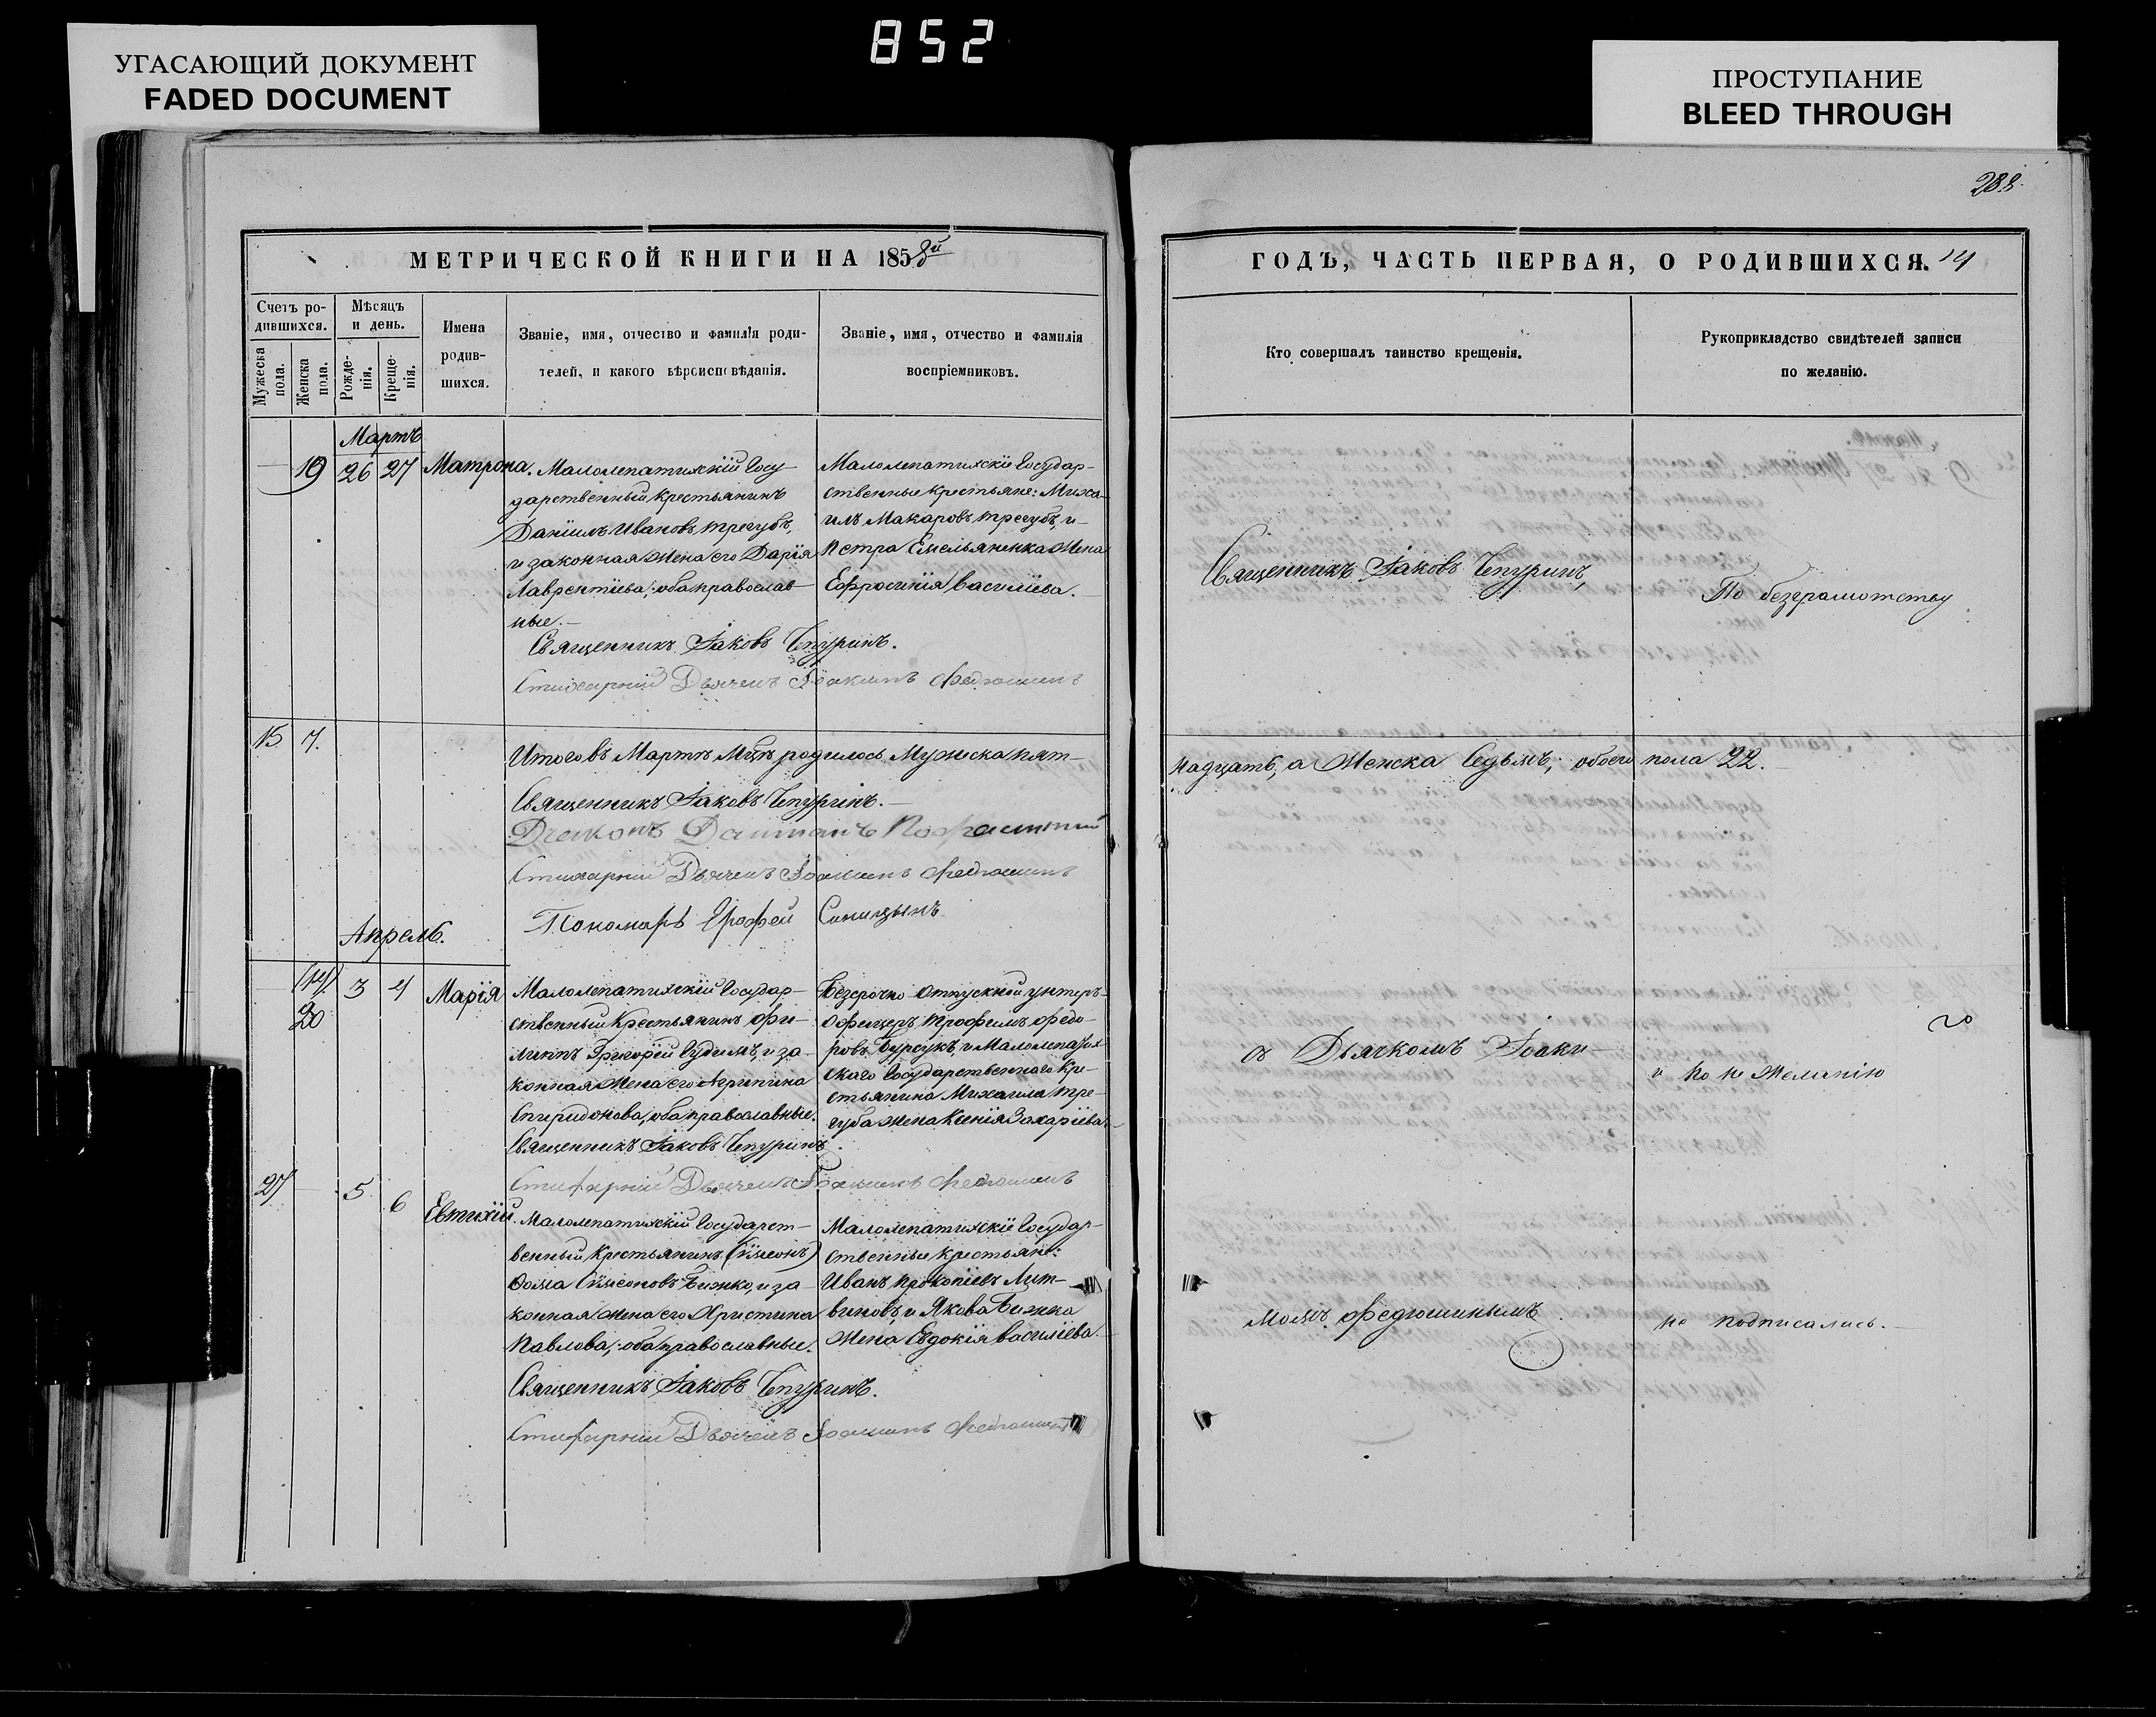 852
УГАСАЮЩИЙ ДОКУМЕНТ
FADED DOCUMENT
ПРОСТУПАНИЕ
BLEED THROUGH
288.
МЕТРИЧЕСКОЙ КНИГИ НА 1858й
ГОДЪ, ЧАСТЬ ПЕРВАЯ, О РОДИВШИХСЯ. 14
Счетъ ро-
дившихся.
Мужеска
пола.
Женска
пола.
Мѣсяцъ
и день.
Рожде-
нія.
Креще-
нія.
Имена
родив-
шихся.
Званіе, имя, отчество и фамилія роди-
телей, и какого вѣроисповѣданія.
Званіе, имя, отчество и фамилія
воспріемниковъ.
Кто совершалъ таинство крещенія.
Рукоприкладство свидѣтелей записи
по желанію.
Мартъ
19 26 27 Матрона.
Малолепатихскій Госу-
дарственный крестьянинъ
Даніилъ Ивановъ Трегубъ,
и законная жена его Дарія
Лаврентіева; оба православ-
ные.-
Священникъ Іаковъ Чепуринъ.
Стихарный Дьячекъ Іоакимъ Федюшинъ
Малолепатихскіе Государ-
ственные крестьяне: Миха-
илъ Макаровъ Трегубъ, и
Петра Емельяненка жена
Ефросинія Василіева.
Священникъ Іаковъ Чепуринъ,
По безграмотству
15 7.
Итого въ Мартѣ Мцѣ родилось Мужска пят-
надцать, а Женска Седьмъ; обоего пола 22.
Священникъ Іаковъ Чепуринъ.-
Діаконъ
Стихарный Дьячекъ Іоакимъ Федюшинъ
Пономарь Ерофей Синицынъ
Апрель.
(14)
20 3 4 Марія
Малолепатихскій Государ-
ственный крестьянинъ Фи-
липпъ Григорій Гудимъ, и за-
конная жена его Агрипина
Спиридонова, оба православные.
Священникъ Іаковъ Чепуринъ.
Стихарный Дьячекъ Іоакимъ Федюшинъ
Безсрочно-Отпускной унтеръ-
Офицеръ Трофимъ Федо-
ровъ Бурсукъ, и Малолепатих-
скаго Государственнаго Кре-
стьянина Михаила Тре-
губа жена Ксенія Захаріева.
съ Дьячкомъ Іоаки-
и по не желанію
20
27 5 6 Евтихій.
Малолепатихскій Государст-
венный крестьянинъ (Сѵмеонъ)
Ѳома Сѵмеоновъ Бижко, и за-
конная жена его Христина
Павлова; оба православные.
Священникъ Іаковъ Чепуринъ.
Стихарный Дьячекъ Іоакимъ Федюшинъ
Малолепатихскіе Государ-
ственные крестьяне:
Иванъ Прокопіевъ Лит-
виновъ, и Якова Бижка
жена Евдокія Василіева.
момъ Федюшинымъ
не подписались.-